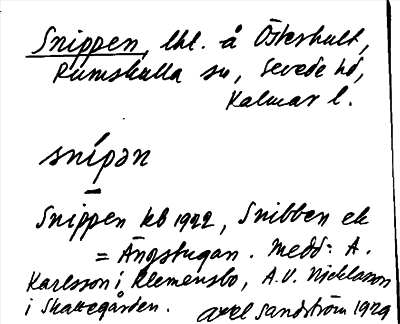 Snippen, lhl. å Österhult,
Rumskulla sn, Sevede hd,
Kalmar l.
snípən
Snippen kb 1922, Snibben ek
= Ängstugan. Medd: A.
Karlsson i Klemensbo, A.V. Nicklasson
i Skattegården. Axel Sandström 1929